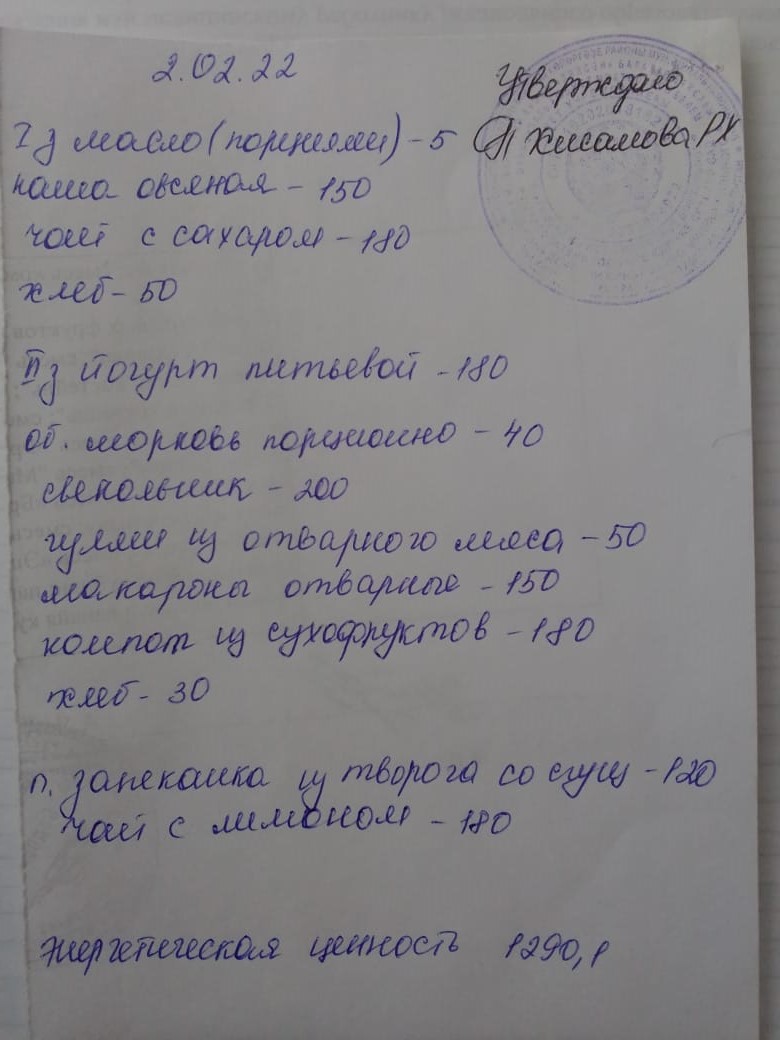 2.02.22
Утверждаю
I з масло (порциями) - 5
Хисамова РХ
каша овсяная - 150
чай с сахаром - 180
хлеб - 50
II з йогурт питьевой - 180
об. морковь порционно - 40
свекольник - 200
гуляш из отварного мяса - 50
макароны отварные - 150
компот из сухофруктов - 180
хлеб - 30
п. запеканка из творога со сгущ - 120
чай с лимоном - 180
Энергетическая ценность 1290,1